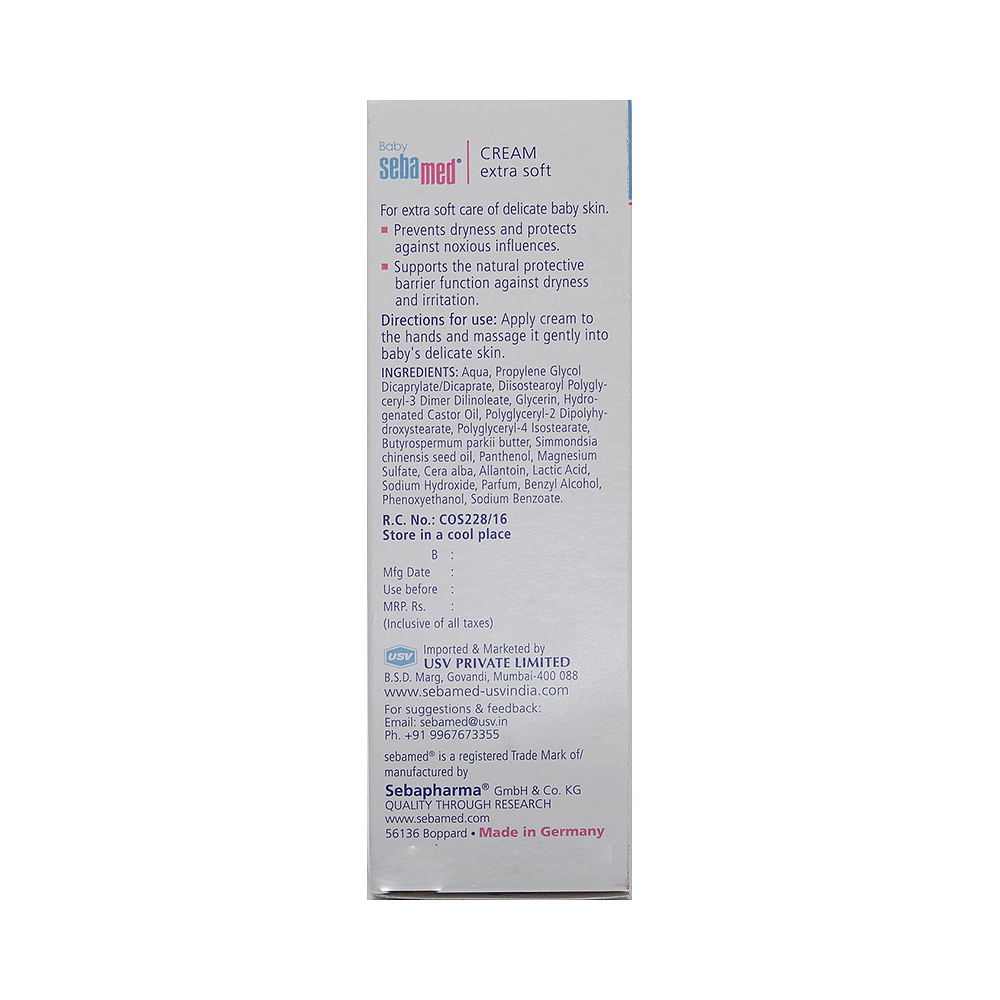 Baby
sebamed®
CREAM
extra soft
For extra soft care of delicate baby skin.
▪ Prevents dryness and protects
against noxious influences.
▪ Supports the natural protective
barrier function against dryness
and irritation.
Directions for use: Apply cream to
the hands and massage it gently into
baby's delicate skin.
INGREDIENTS: Aqua, Propylene Glycol
Dicaprylate/Dicaprate, Diisostearoyl Polygly-
ceryl-3 Dimer Dilinoleate, Glycerin, Hydro-
genated Castor Oil, Polyglyceryl-2 Dipolyhy-
droxystearate, Polyglyceryl-4 Isostearate,
Butyrospermum parkii butter, Simmondsia
chinensis seed oil, Panthenol, Magnesium
Sulfate, Cera alba, Allantoin, Lactic Acid,
Sodium Hydroxide, Parfum, Benzyl Alcohol,
Phenoxyethanol, Sodium Benzoate.
R.C. No.: COS228/16
Store in a cool place
B :
Mfg Date :
Use before :
MRP. Rs. :
(Inclusive of all taxes)
USV
Imported & Marketed by
USV PRIVATE LIMITED
B.S.D. Marg, Govandi, Mumbai-400 088
www.sebamed-usvindia.com
For suggestions & feedback:
Email: sebamed@usv.in
Ph. +91 9967673355
sebamed® is a registered Trade Mark of/
manufactured by
Sebapharma® GmbH & Co. KG
QUALITY THROUGH RESEARCH
www.sebamed.com
56136 Boppard • Made in Germany